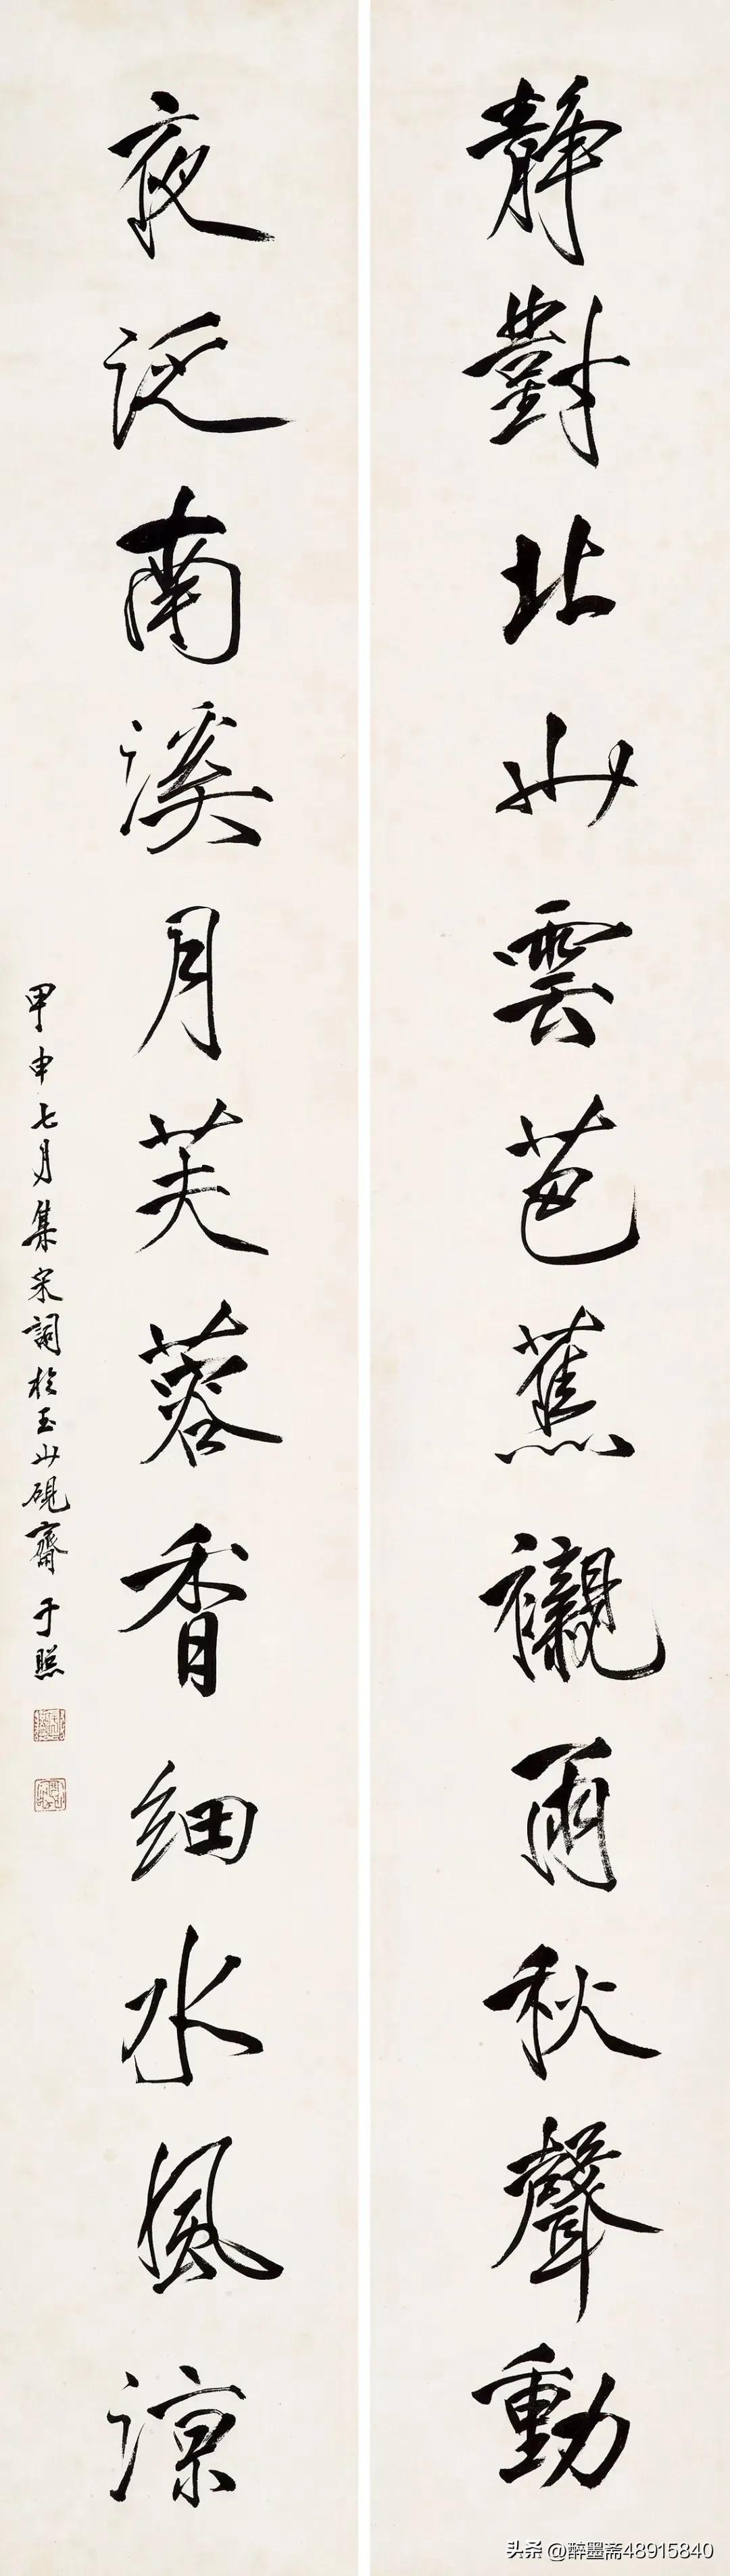 靜對北山雲芭蕉襯雨秋聲動
夜泛南溪月芙蓉香細水風涼
甲申七月集宋詞於玉山硯齋于照
头条 @醉墨斋48915840